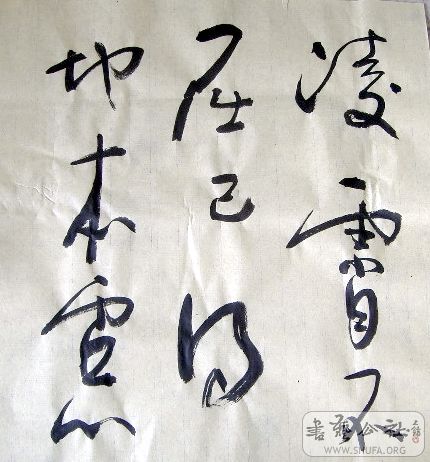 凌霄不
屈己得
地本虚心
書藝公社
WWW.SHUFA.ORG